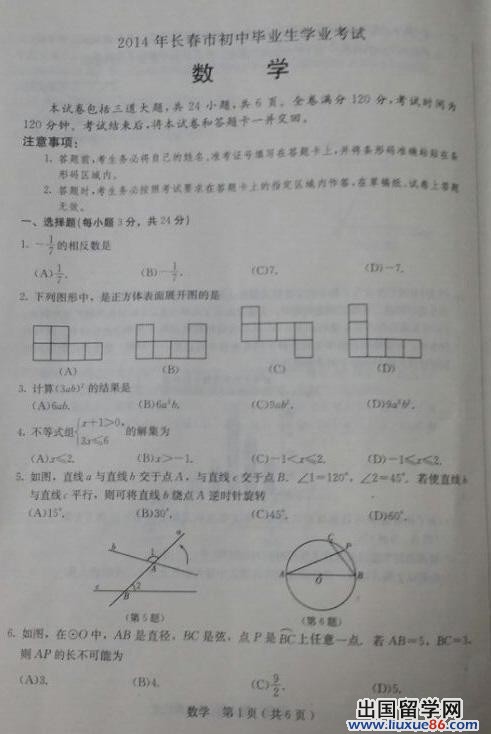 2014年长春市初中毕业生学业考试
数 学
本试卷包括三道大题,共24小题,共6页。全卷满分120分,考试时间为
120分钟。考试结束后,将本试卷和答题卡一并交回。
注意事项:
1. 答题前,考生务必将自己的姓名、准考证号填写在答题卡上,并将条形码准确粘贴在条
形码区域内。
2. 答题时,考生务必按照考试要求在答题卡上的指定区域内作答,在草稿纸、试卷上答题
无效。
一、选择题(每小题3分,共24分)
1. -1/7的相反数是
(A)1/7. (B)-1/7. (C)7. (D)-7.
2. 下列图形中,是正方体表面展开图的是
(A) (B) (C) (D)
3. 计算(3ab)²的结果是
(A)6ab. (B)6a²b. (C)9ab². (D)9a²b².
4. 不等式组{x+1>0, 3x≤6 的解集为
(A)x≤2. (B)x>-1. (C)-1<x≤2. (D)-1≤x≤2.
5. 如图,直线a与直线b交于点A,与直线c交于点B. ∠1=120°,∠2=45°. 若使直线b
与直线c平行,则可将直线b绕点A逆时针旋转
(A)15°. (B)30°. (C)45°. (D)60°.
a
b
1
A
c
B
2
C
P
A
O
B
(第5题) (第6题)
6. 如图,在⊙O中,AB是直径,BC是弦,点P是BC上任意一点. 若AB=5,BC=3,
则AP的长不可能为
(A)3. (B)4. (C)9/2. (D)5.
数学 第1页(共6页)
出国留学网
www.liuxue86.com